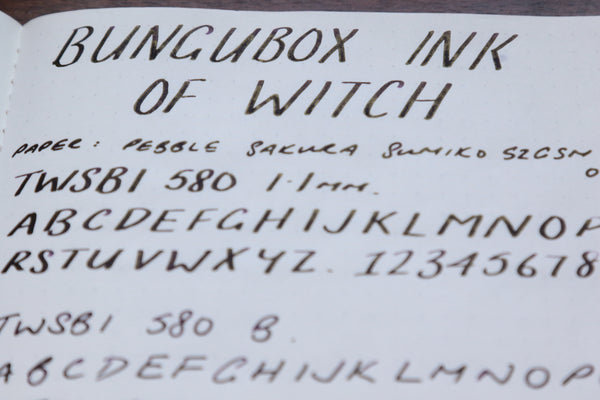 BUNGUBOX INK
OF WITCH
PAPER: PEBBLE SAKURA SUMIKO 52GSM
TWSBI 580 1.1mm.
ABCDEFGHIJKLMNOP
RSTUVWXYZ. 12345678
TWSBI 580 B.
ABCDEFGHIJKLMNOP